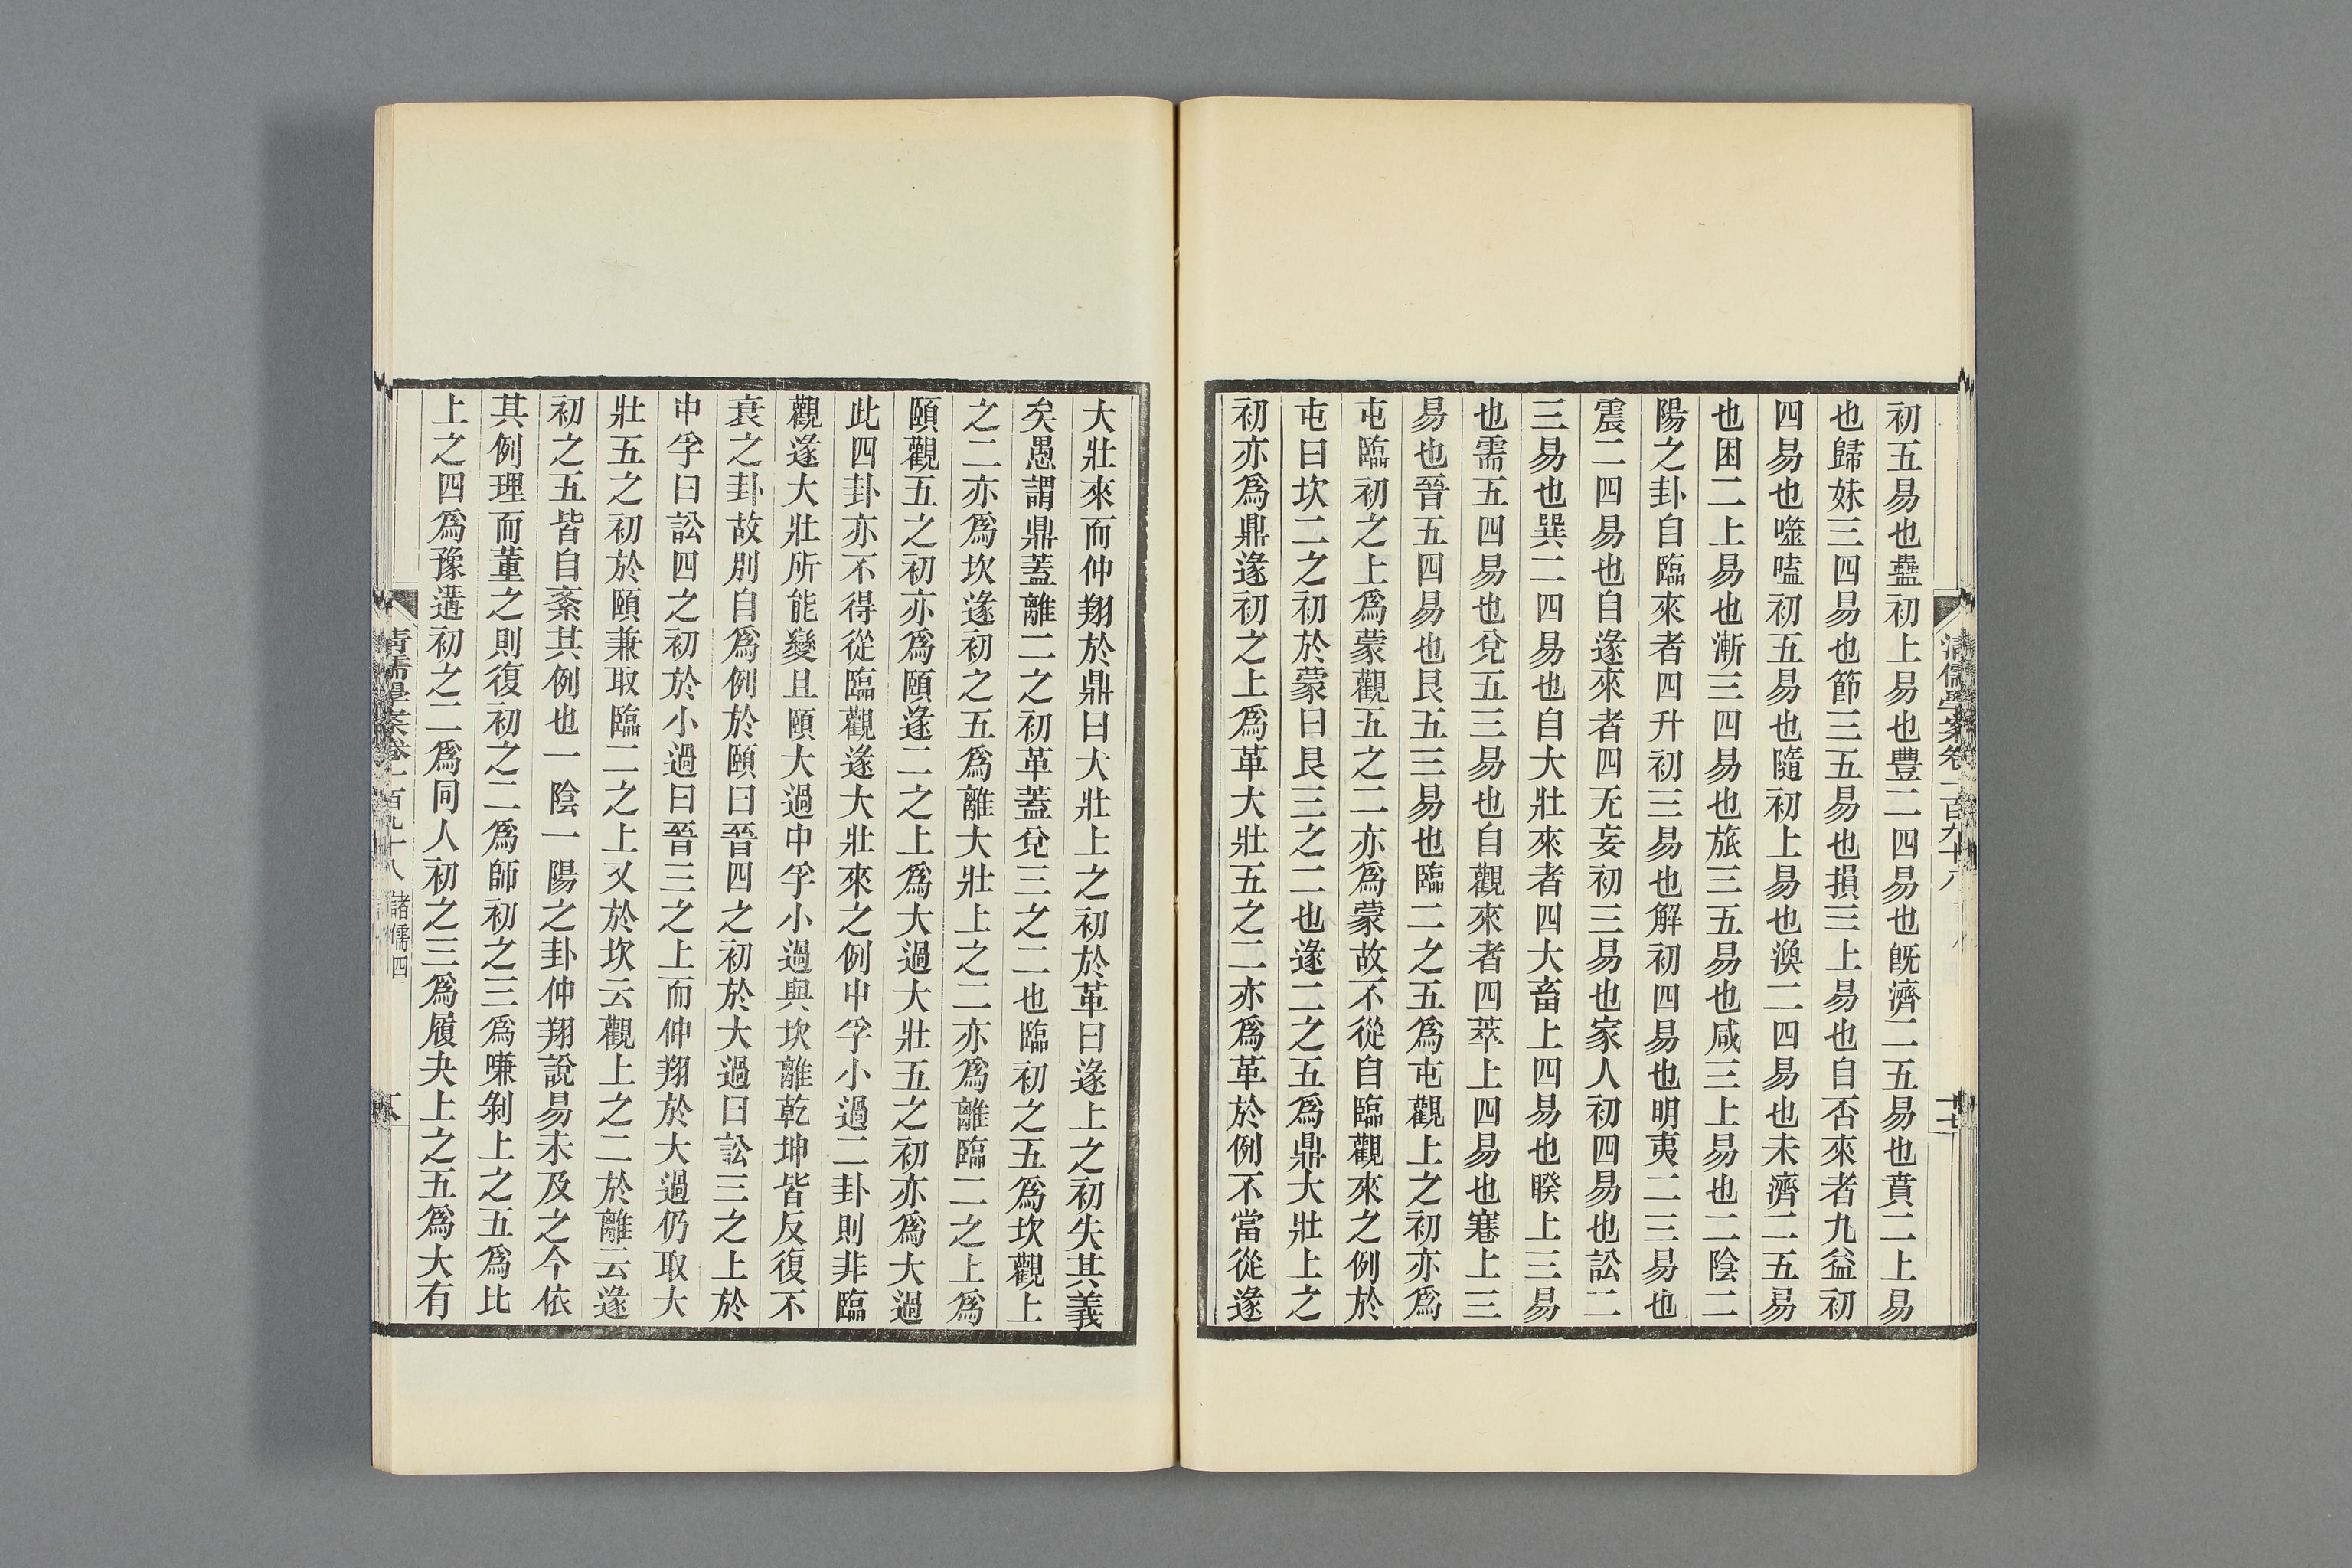 初五易也蠱初上易也豐二四易也旣濟二五易也賁二上易
也歸妹三四易也節三五易也損三上易也自否來者九益初
四易也噬嗑初五易也隨初上易也渙二四易也未濟二五易
也困二上易也漸三四易也旅三五易也咸三上易也二陰二
陽之卦自臨來者四升初三易也解初四易也明夷二三易也
震二四易也自遂來者四无妄初三易也家人初四易也訟二
三易也巽二四易也自大壯來者四大畜上四易也睽上三易
也需五四易也兌五三易也自觀來者四萃上四易也蹇上三
易也晉五四易也艮五三易也臨二之五爲屯觀上之初亦爲
屯臨初之上爲蒙觀五之二亦爲蒙故不從自臨觀來之例於
屯曰坎二之初於蒙曰艮三之二也遂二之五爲鼎大壯上之
初亦爲鼎遂初之上爲革大壯五之二亦爲革於例不當從遂
清儒學案卷一百九十八
十七
大壯來而仲翔於鼎曰大壯上之初於革曰遂上之初失其義
矣愚謂鼎蓋離二之初革蓋兌三之二也臨初之五爲坎觀上
之二亦爲坎遂初之五爲離大壯上之二亦爲離臨二之上爲
頤觀五之初亦爲頤遂二之上爲大過大壯五之初亦爲大過
此四卦亦不得從臨觀遂大壯來之例中孚小過二卦則非臨
觀遂大壯所能變且頤大過中孚小過與坎離乾坤皆反復不
衰之卦故別自爲例於頤曰晉四之初於大過曰訟三之上於
中孚曰訟四之初於小過曰晉三之上而仲翔於大過仍取大
壯五之初於頤兼取臨二之上又於坎云觀上之二於離云遂
初之五皆自紊其例也一陰一陽之卦仲翔說易未及之今依
其例理而董之則復初之二爲師初之三爲嗛剝上之五爲比
上之四爲豫遘初之二爲同人初之三爲履夬上之五爲大有
清儒學案卷一百九十八 諸儒四